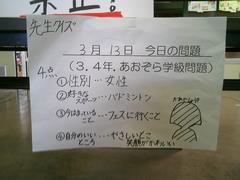 禁止!
先生クイズ
3月13日 今日の問題
(3.4年.あおぞら学級問題)
4点
①性別…女性
②好きなスポーツ…バドミントン
③今はまっていること…フェスに行くこと
④自分のいいところ…やさしいとこ
笑顔がかわいい